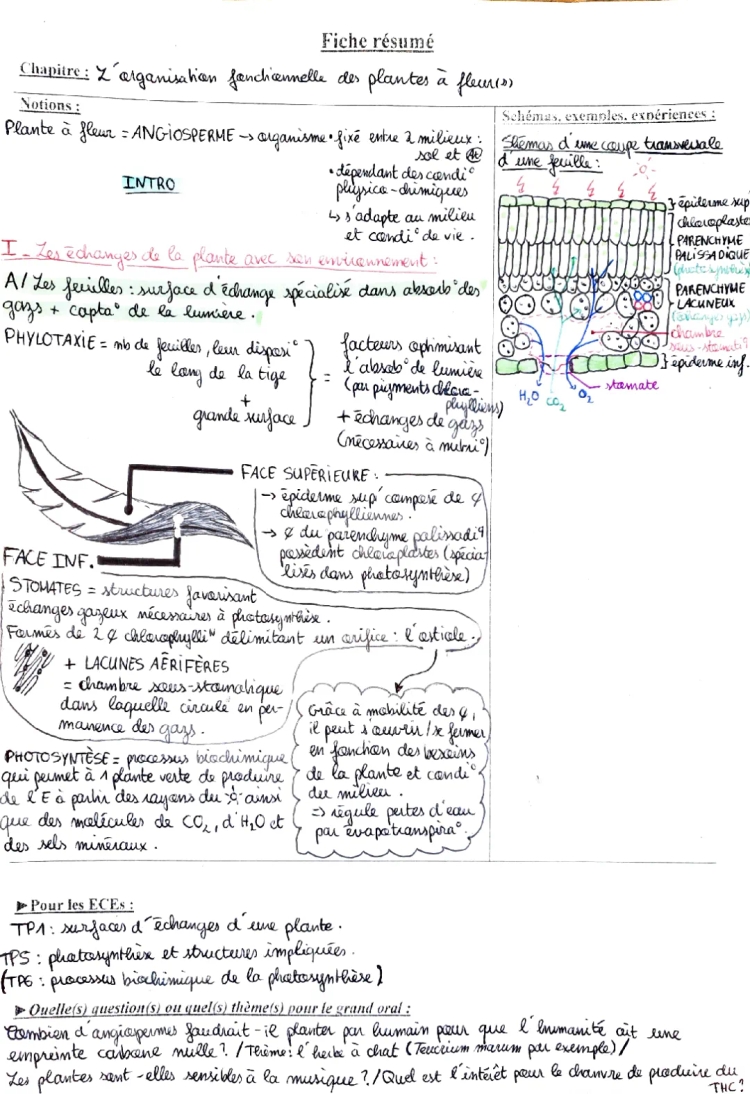 Fiche résumé
Chapitre : L'organisation fonctionnelle des plantes à fleur(s)
Notions :
Plante à fleur = ANGIOSPERME → organisme • fixé entre 2 milieux :
sol et
• dépendant des condi°
physico-chimiques
↳ s'adapte au milieu
et condi° de vie.
INTRO
I - Les échanges de la plante avec son environnement :
A/ Les feuilles : surface d'échange spécialisé dans absorb° des
gazs + capta° de la lumière.
PHYLOTAXIE = nb de feuilles, leur disposi°
le long de la tige
+
grande surface
=
facteurs optimisant
l'absorb° de lumière
(par pigments chloro-
phylliens)
+ échanges de gazs
(nécessaires à nutri°)
FACE SUPÉRIEURE :
→ épiderme sup' composé de ¢
chlorophylliennes.
→ ¢ du parenchyme palissadiq
possèdent chloroplastes (spécia-
lisés dans photosynthèse)
FACE INF.
STOMATES = structures favorisant
échanges gazeux nécessaires à photosynthèse.
Formés de 2 ¢ chlorophylli délimitant un orifice : l'ostiole.
+ LACUNES AÉRIFÈRES
= chambre sous-stomatique
dans laquelle circule en per-
manence des gazs.
Grâce à mobilité des ¢,
il peut s'ouvrir/se fermer
en fonction des besoins
de la plante et condi°
du milieu.
⇒ régule pertes d'eau
par évapotranspira°.
PHOTOSYNTÈSE = processus biochimique
qui permet à 1 plante verte de produire
de l'E à partir des rayons du ainsi
que des molécules de CO₂, d'H₂O et
des sels minéraux.
Schémas, exemples, expériences :
Shémas d'une coupe transversale
d'une feuille :
épiderme sup
chloroplaste
PARENCHYME
PALISSADIQUE
(photosynthèse)
PARENCHYME
LACUNEUX
(échanges gazs)
chambre
sous-stomatiq
épiderme inf.
stomate
H₂O CO₂ O₂
► Pour les ECEs :
TP1 : surfaces d'échanges d'une plante.
TP5 : photosynthèse et structures impliquées.
(TP6 : processus biochimique de la photosynthèse)
► Quelle(s) question(s) ou quel(s) thème(s) pour le grand oral :
Combien d'angiospermes faudrait-il planter par humain pour que l'humanité ait une
empreinte carbone nulle ? / Thème : l'herbe à chat (Teucrium marum par exemple) /
Les plantes sont-elles sensibles à la musique ? / Quel est l'intérêt pour le chanvre de produire du
THC ?